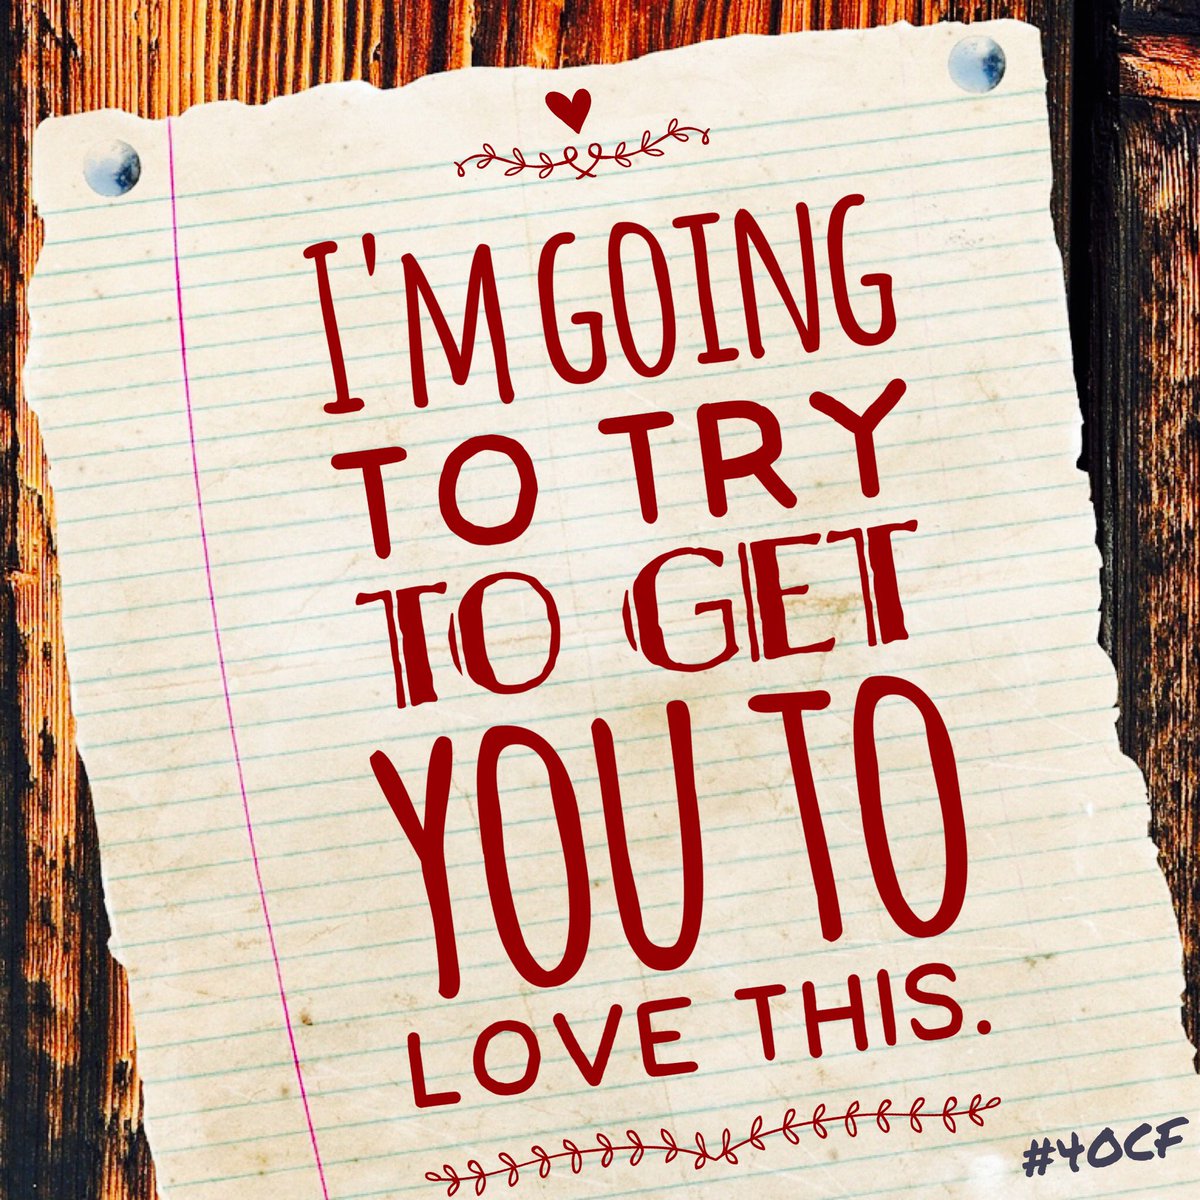 I'M GOING
TO TRY
TO GET
YOU TO
LOVE THIS.
#4OCF